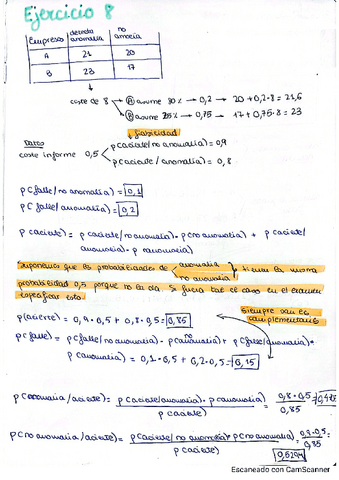 Ejercicio 8
Empresa detecta anomalía no anomalía
A 21 20
B 23 17
coste de 8 → A asume 20% → 0,2 → 20 + 0,2·8 = 21,6
B asume 75% → 0,75 → 17 + 0,75·8 = 23
fiabilidad
Datos
coste informe 0,5 p(acierte/no anomalía) = 0,9
p(acierte/anomalía) = 0,8
p(falle/no anomalía) = 0,1
p(falle/anomalía) = 0,2
p(acierte) = p(acierte/no anomalía) · p(no anomalía) + p(acierte/
anomalía) · p(anomalía)
suponemos que las probabilidades de anomalía
no anomalía tienen la misma
probabilidad 0,5 porque no la da. Si fuera tal el caso en el examen
especificar esto.
p(acierte) = 0,9·0,5 + 0,8·0,5 = 0,85
siempre son es
complementario
p(falle) = p(falle/no anomalía) · p(no anomalía) + p(falle/anomalía)·
p(anomalía) = 0,1·0,5 + 0,2·0,5 = 0,15
p(anomalía/acierte) = p(acierte/anomalía) · p(anomalía) / p(acierte) = 0,8·0,5 / 0,85
p(no anomalía/acierte) = p(acierte/no anomalía) · p(no anomalía) / p(acierte) = 0,9·0,5 / 0,85 =
0,5294
Escaneado con CamScanner